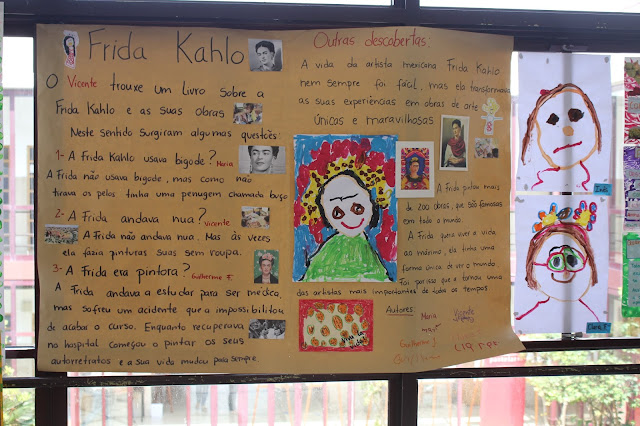 Frida Kahlo
O Vicente trouxe um livro sobre a
Frida Kahlo e as suas obras
Neste sentido surgiram algumas questões:
1- A Frida Kahlo usava bigode? Maria
A Frida não usava bigode, mas como não
tirava os pelos tinha uma penugem chamada buço
2- A Frida andava nua? Vicente
A Frida não andava nua. Mas às vezes
ela fazia pinturas suas sem roupa.
3- A Frida era pintora? Guilherme F.
A Frida andava a estudar para ser médica,
mas sofreu um acidente que a impossibilitou
de acabar o curso. Enquanto recuperava
no hospital começou a pintar os seus
autorretratos e a sua vida mudou para sempre.
Outras descobertas:
A vida da artista mexicana Frida Kahlo
nem sempre foi fácil, mas ela transformava
as suas experiências em obras de arte
únicas e maravilhosas
A Frida pintou mais
de 200 obras, que são famosas
em todo o mundo.
A Frida queria viver a vida
ao máximo, ela tinha uma
forma única de ver o mundo.
Foi por isso que a tornou uma
das artistas mais importantes de todo os tempos
Autores
Maria
Vicente
Guilherme